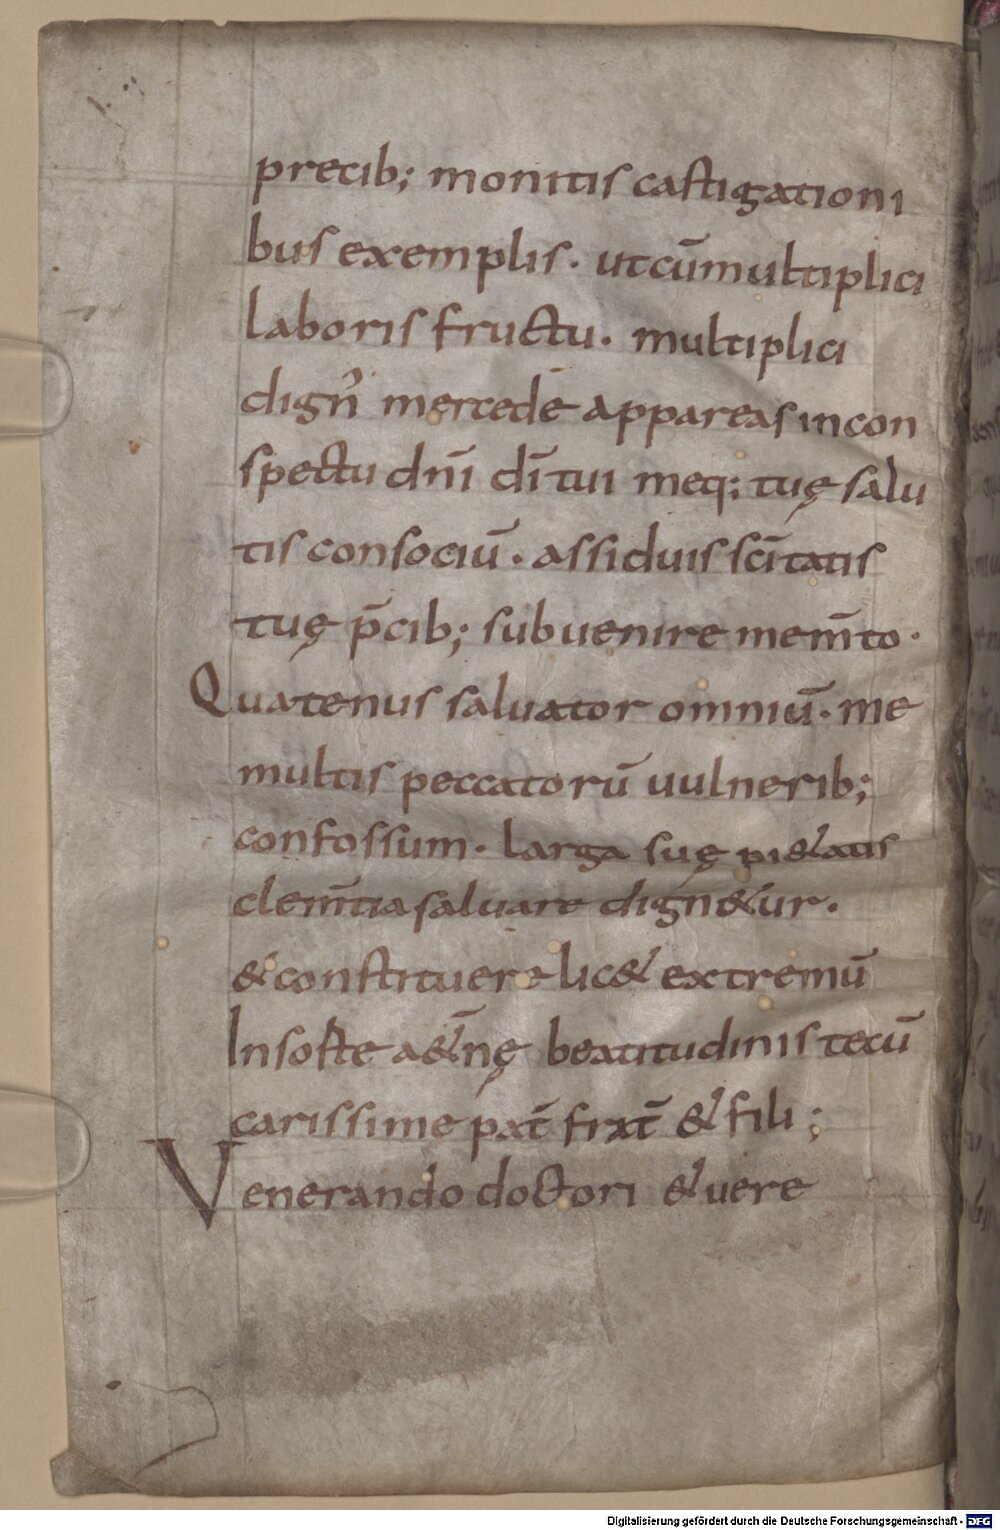 precib; monitis castigationi
bus exemplis · utcū multiplici
laboris fructu · multiplici
dign᾽ mercede appareas incon
spectu dnī dī tui meq; tuę salu
tis consociū · assiduis scītatis
tuę p̄cib; subuenire mem̄to ·
Quatenus saluator omniū · me
multis peccatorū uulnerib;
confossum · larga suę pi&atis
clem̄tia saluare dign&ur ·
& constituere lic& extremū
In sorte a&̄nę beatitudinis tecū
carissime pat̄ frat̄ & fili ;
Venerando doctori & uere
Digitalisierung gefördert durch die Deutsche Forschungsgemeinschaft - DFG